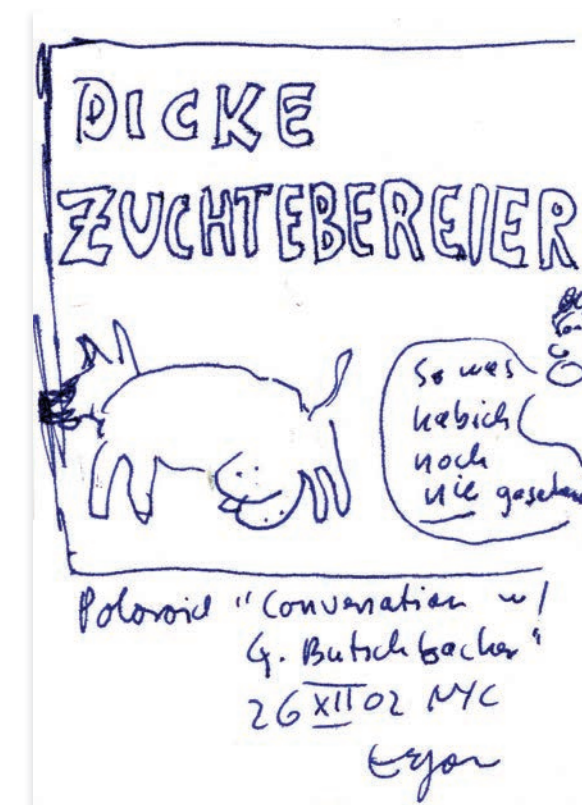 DICKE
ZUCHTEBEREIER
So was
habich
noch
nie gesehen
Poloroid "Conversation w/
G. Butschbacher"
26 XII 02 NYC
Egon